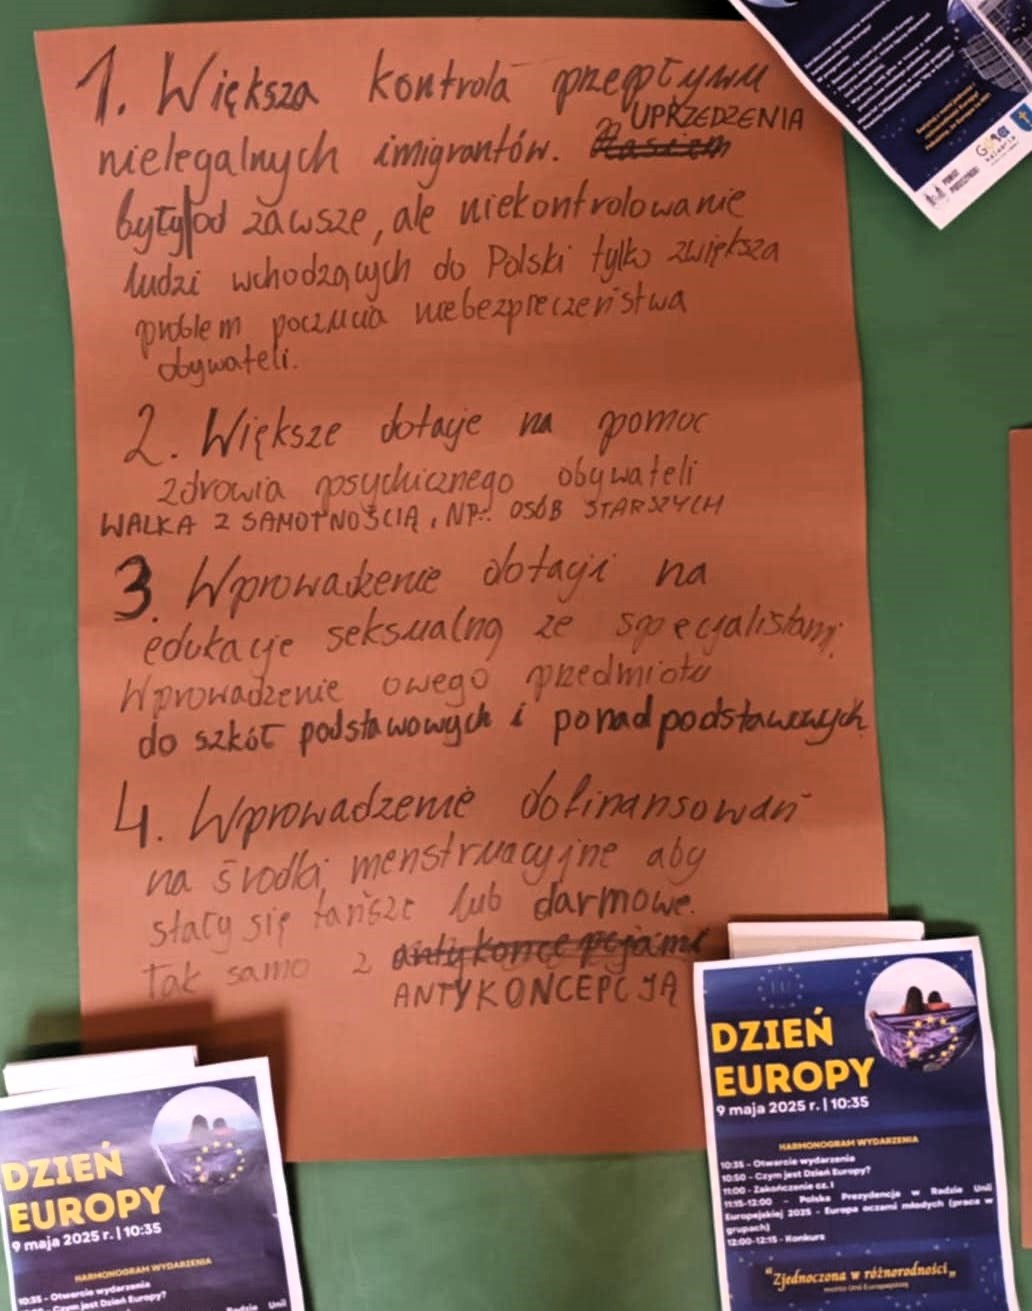 1. Większa kontrola przepływu
UPRZEDZENIA
nielegalnych imigrantów.
były od zawsze, ale niekontrolowanie
ludzi wchodzących do Polski tylko zwiększa
problem poczucia niebezpieczeństwa
obywateli.
2. Większe dotacje na pomoc
zdrowia psychicznego obywateli
WALKA Z SAMOTNOŚCIĄ, NP.: OSÓB STARSZYCH
3. Wprowadzenie dotacji na
edukacje seksualną ze specjalistami.
Wprowadzenie owego przedmiotu
do szkół podstawowych i ponadpodstawowych
4. Wprowadzenie dofinansowań
na środki menstruacyjne aby
stały się tańsze lub darmowe.
Tak samo z antykoncepcjami
ANTYKONCEPCJĄ
DZIEŃ
EUROPY
9 maja 2025 r. | 10:35
HARMONOGRAM WYDARZENIA
10:35 - Otwarcie wydarzenia
10:50 - Czym jest Dzień Europy?
11:00 - Zakończenie cz. I
11:15-12:00 - Polska Prezydencja w Radzie Unii
Europejskiej 2025 - Europa oczami młodych (praca w
grupach)
12:00-12:15 - Konkurs
"Zjednoczona w różnorodności"
motto Unii Europejskiej
DZIEŃ
EUROPY
9 maja 2025 r. | 10:35
HARMONOGRAM WYDARZENIA
10:35 - Otwarcie wydarzenia
- Czym jest Dzień Europy?
Radzie Unii